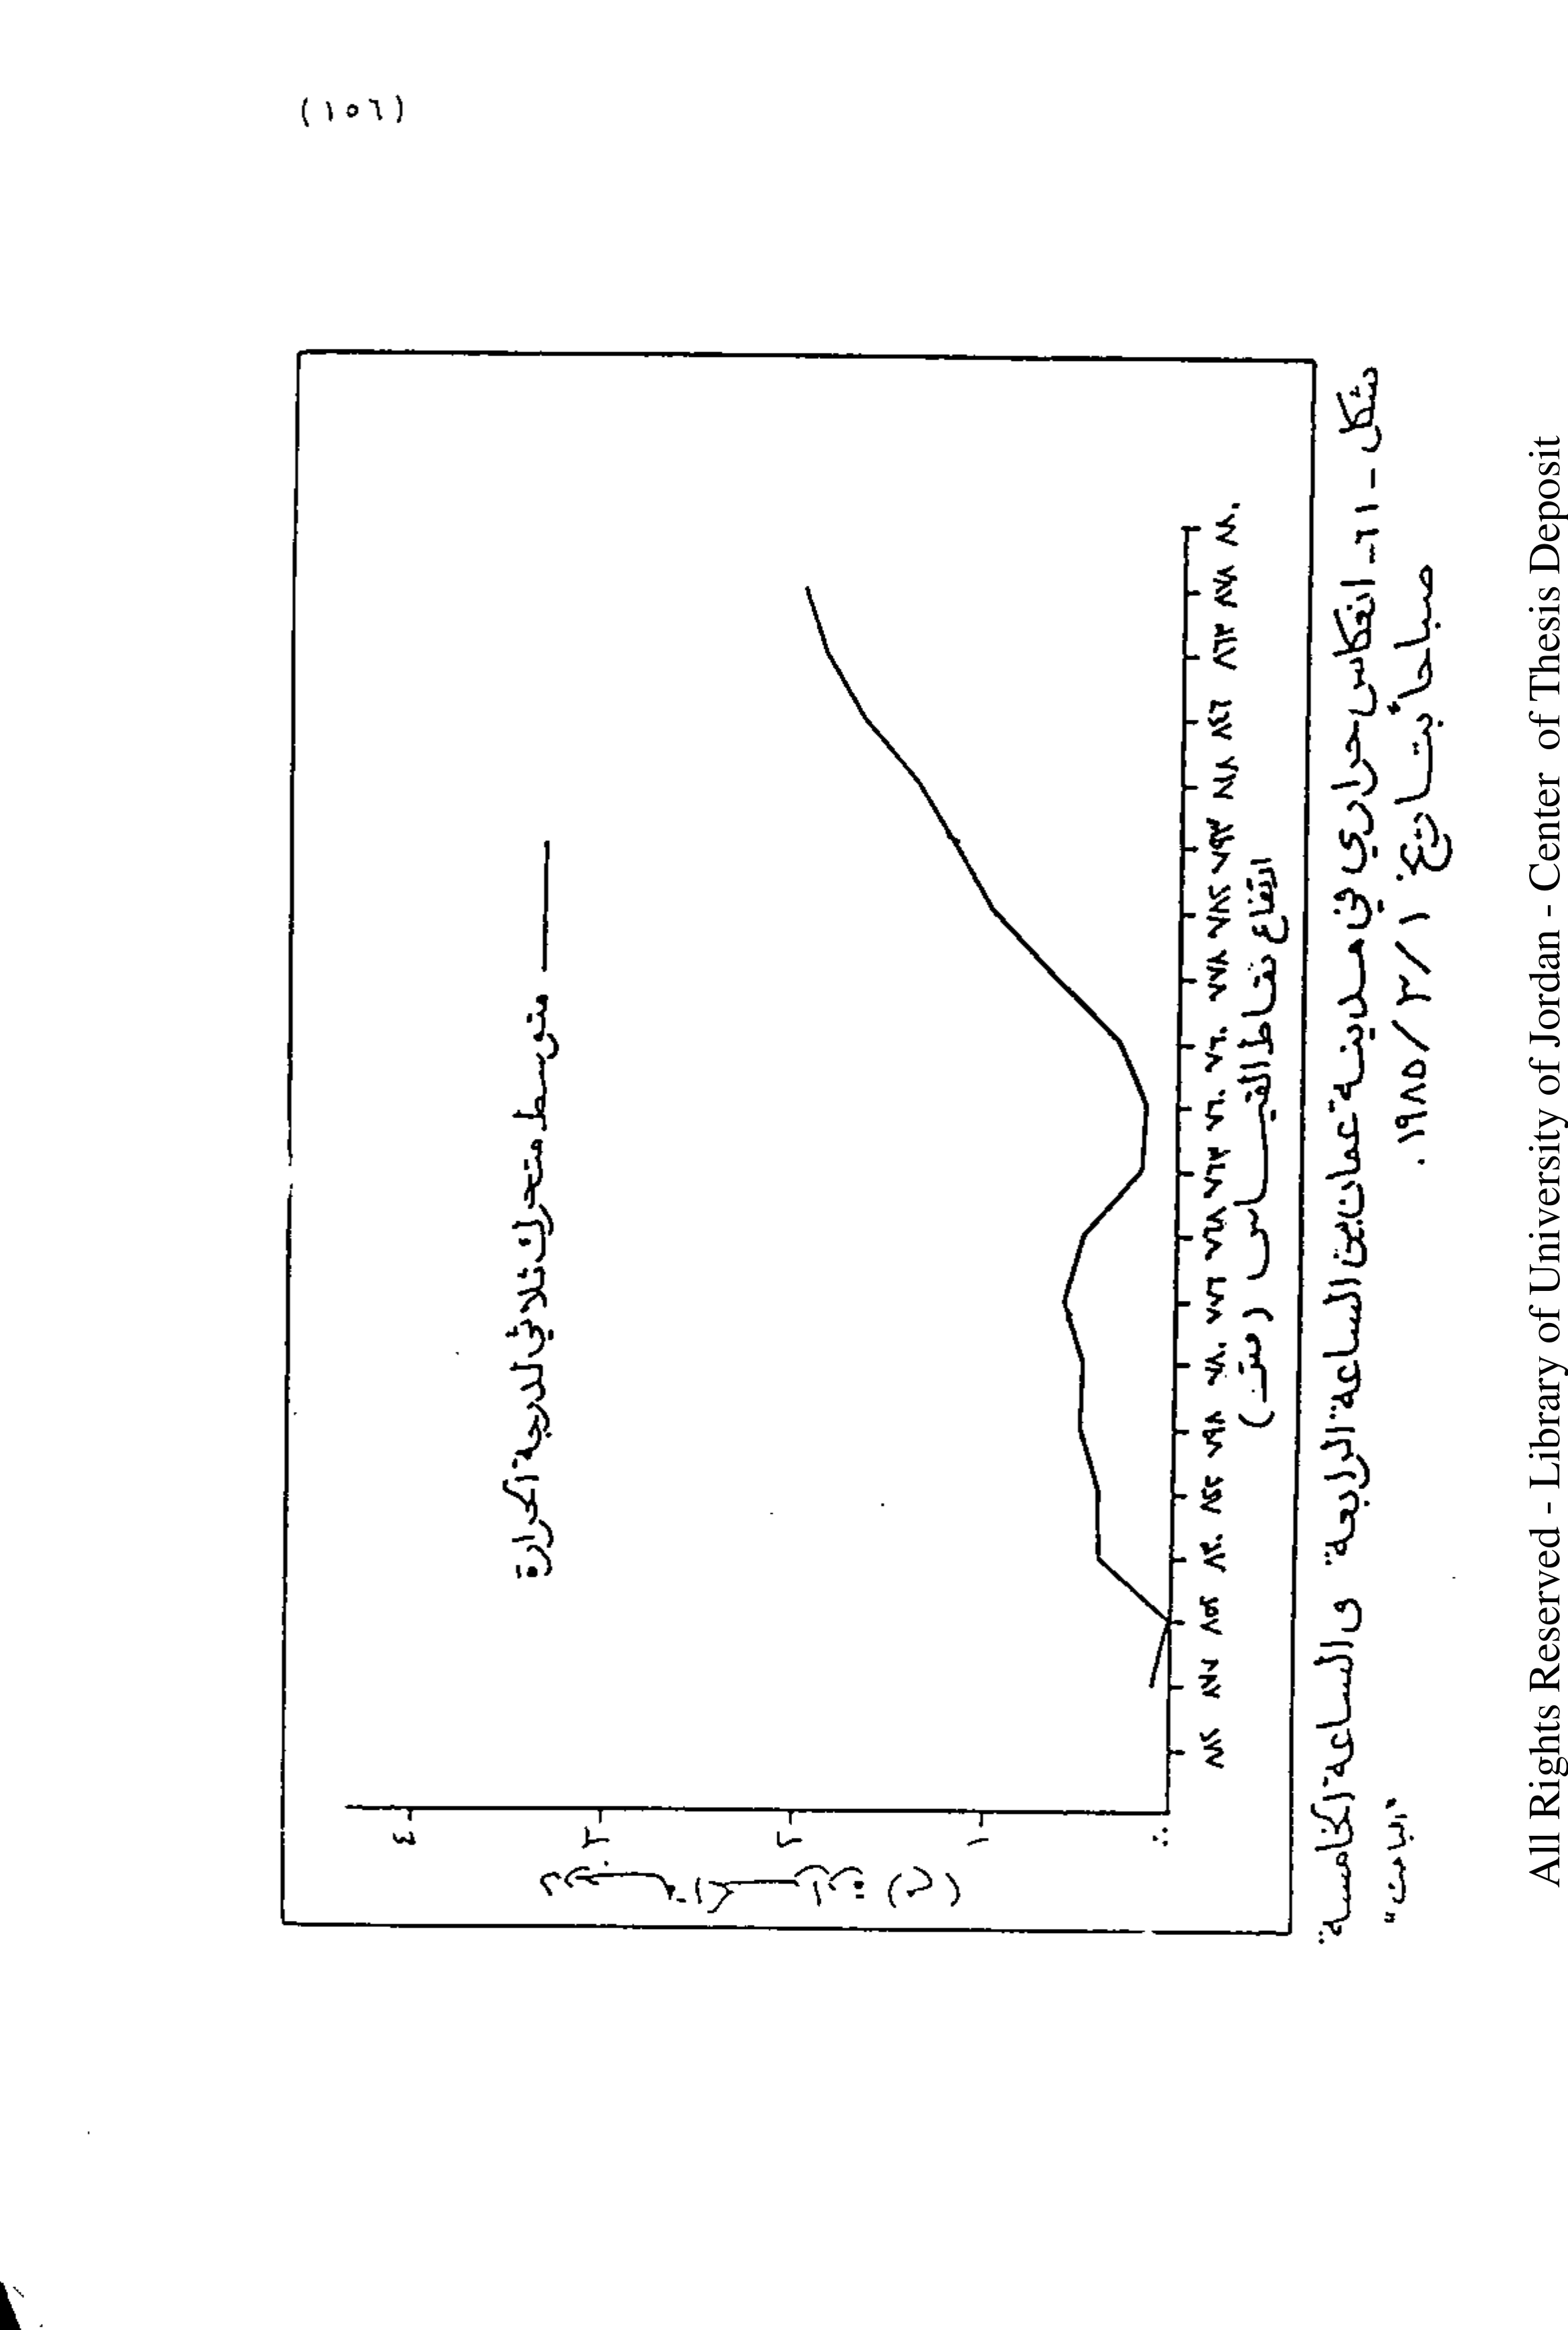 (١٥٦)
متوسط متحرك ثلاثي لدرجة الحرارة
درجة الحرارة (م)
٤
٣
٢
١
٨٧٧ ٨٥٢ ٨٣٠ ٧٩٨ ٧٨٠ ٧٧٦ ٧٦٨ ٧٦٣ ٧٦٠ ٧٦٠ ٧٧٨ ٧٨٢ ٧٩٣ ٨١٨ ٨٤٦ ٨٦٣ ٨٧٨ ٨٨٠
ارتفاع نقاط القياس (متر)
شكل - ٦١ - انعكاس حراري في مدينة عمان بين الساعة الرابعة والساعة الخامسة
صباحاً بتاريخ ١/٣/١٩٨٥.
"الباحث"
All Rights Reserved - Library of University of Jordan - Center of Thesis Deposit